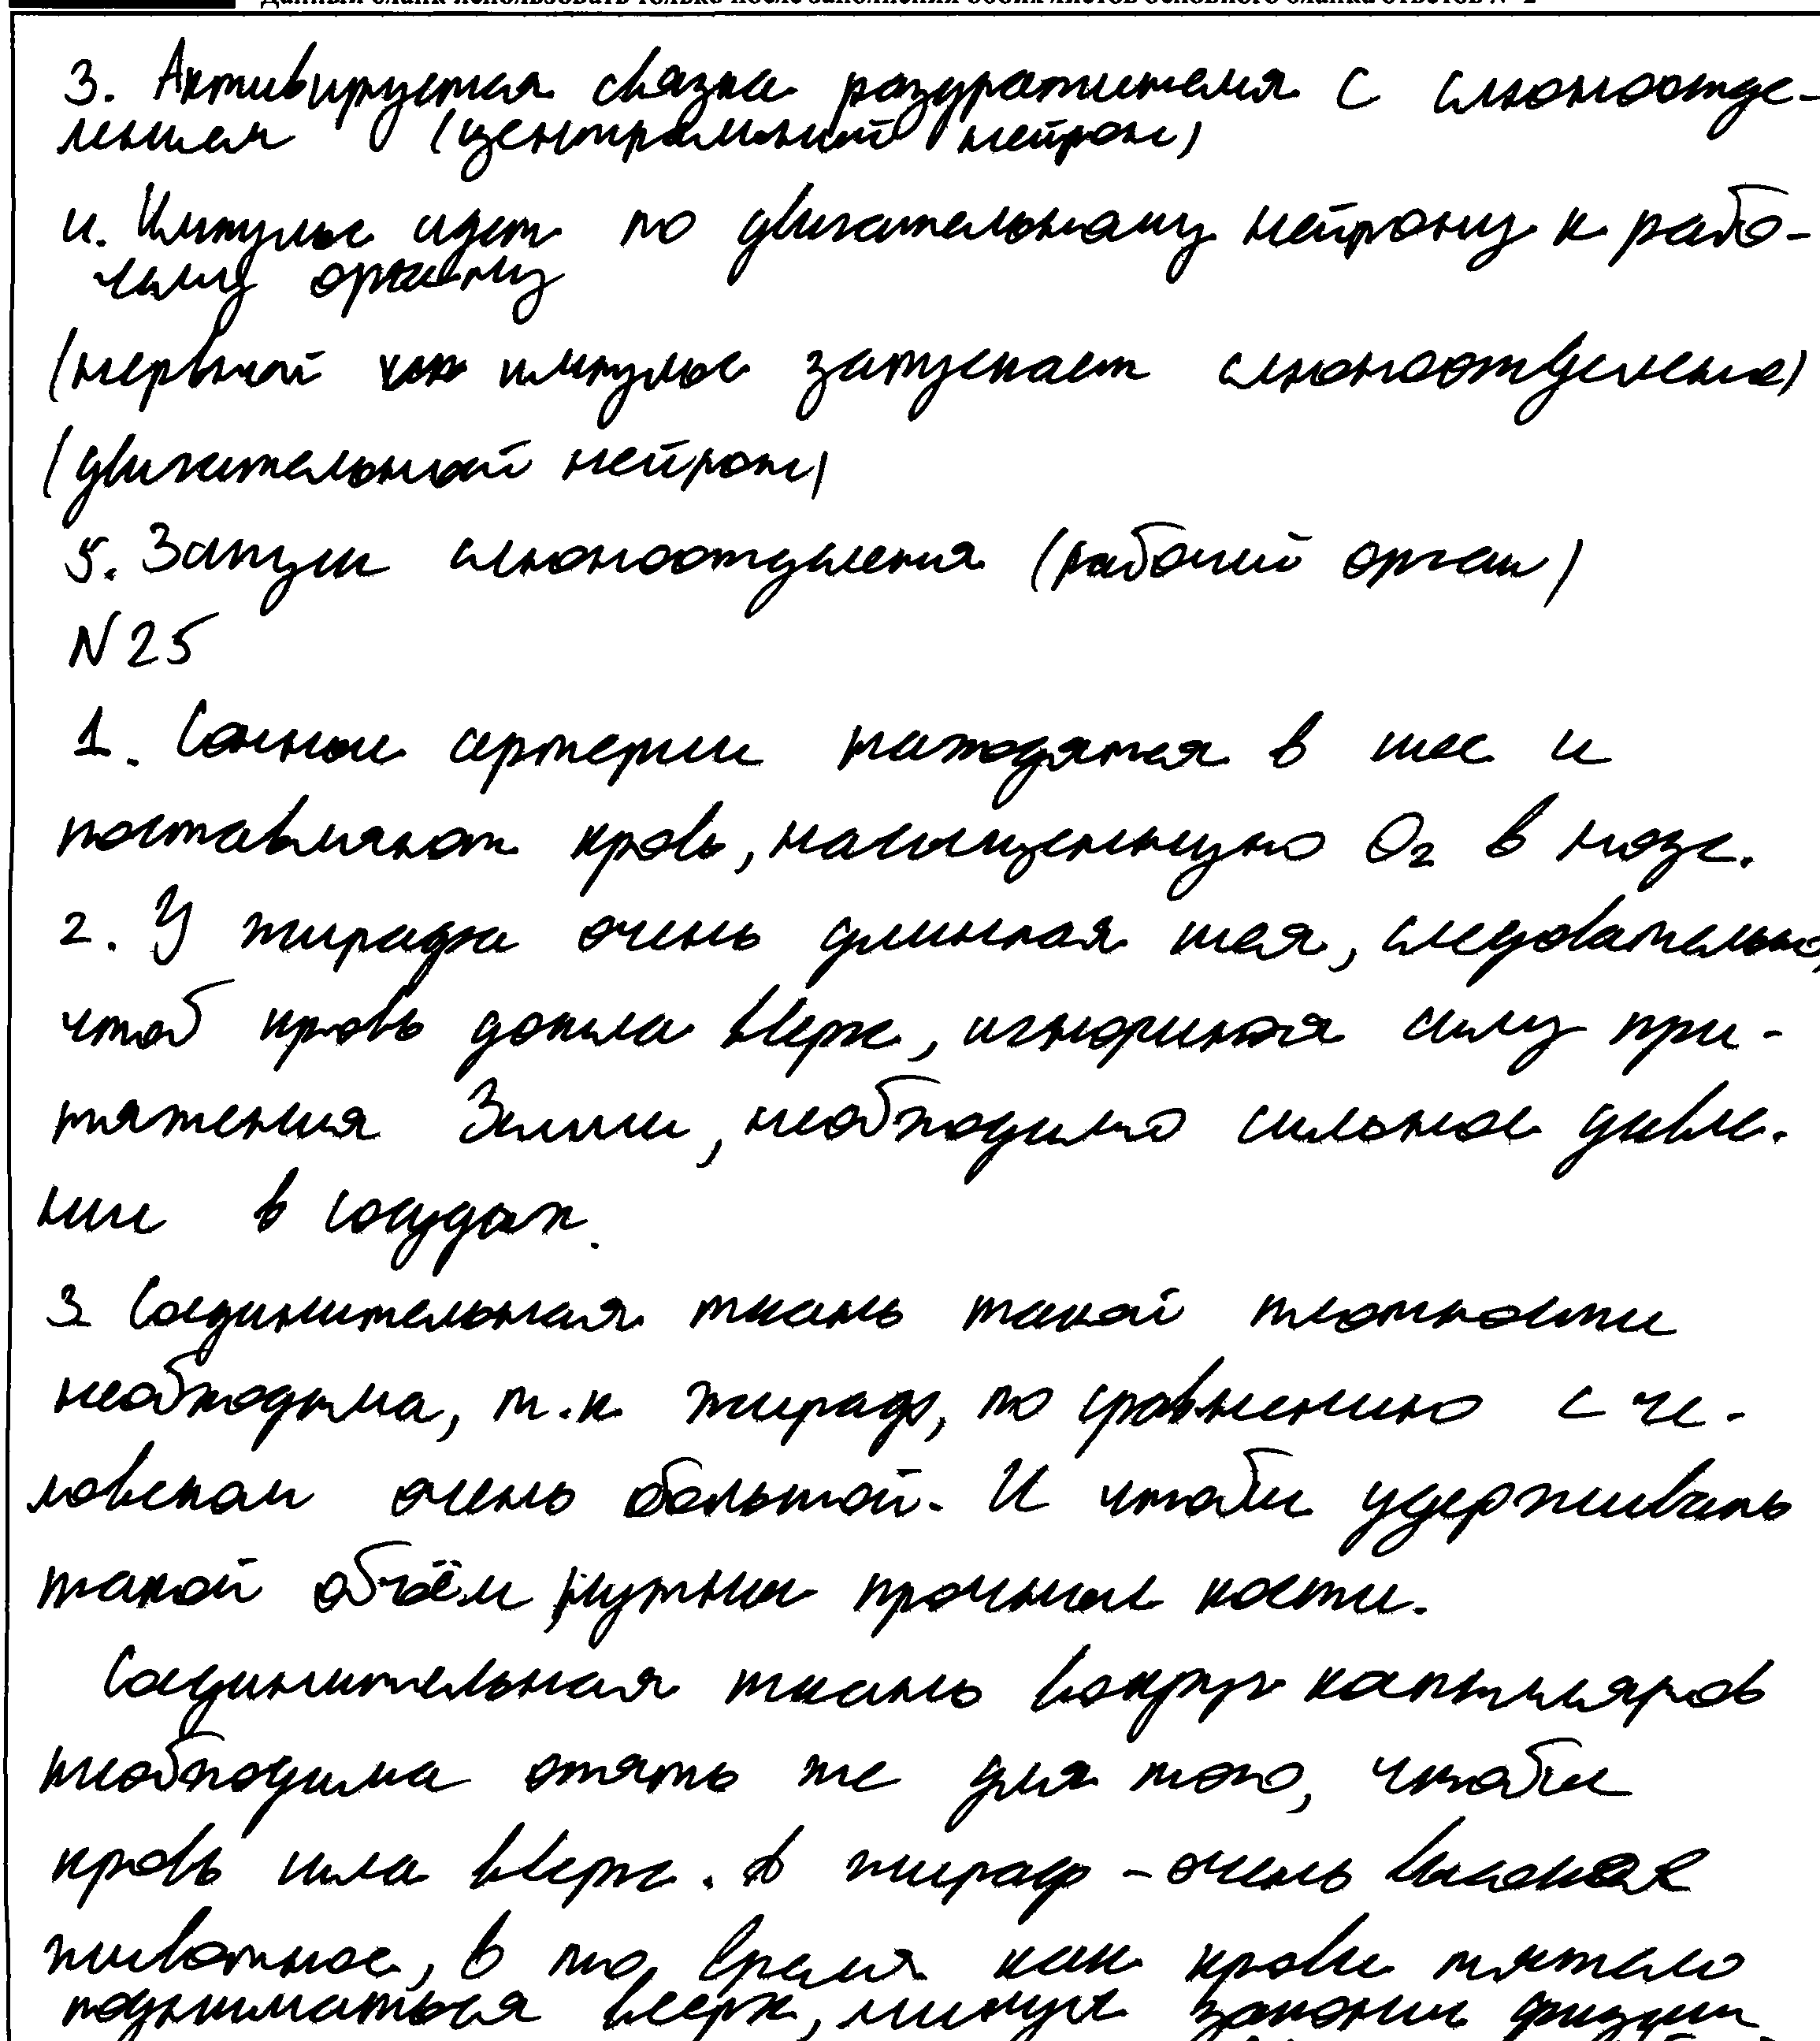 Данный бланк использовать только после заполнения обоих листов основного бланка ответов № 2
3. Активируется связка раздражителя с слюноотде-
лением (центральный нейрон)
4. Импульс идет по двигательному нейрону к рабо-
чему органу
(нервный импульс запускает слюноотделение)
(двигательный нейрон)
5. Запуск слюноотделения (рабочий орган)
N 25
1. Сонные артерии находятся в шее и
поставляют кровь, насыщенную O₂ в мозг.
2. У жирафа очень длинная шея, следовательно,
чтоб кровь дошла вверх, игнорируя силу при-
тяжения Земли, необходимо сильное давле-
ние в сосудах.
3 Соединительная ткань такой плотности
необходима, т.к. жираф, по сравнению с че-
ловеком очень большой. И чтобы удерживать
такой объём, нужны прочные кости.
Соединительная ткань вокруг капилляров
необходима опять же для того, чтобы
кровь шла вверх. жираф - очень высокое
животное, в то время как крови тяжело
подниматься вверх, минуя законы физики